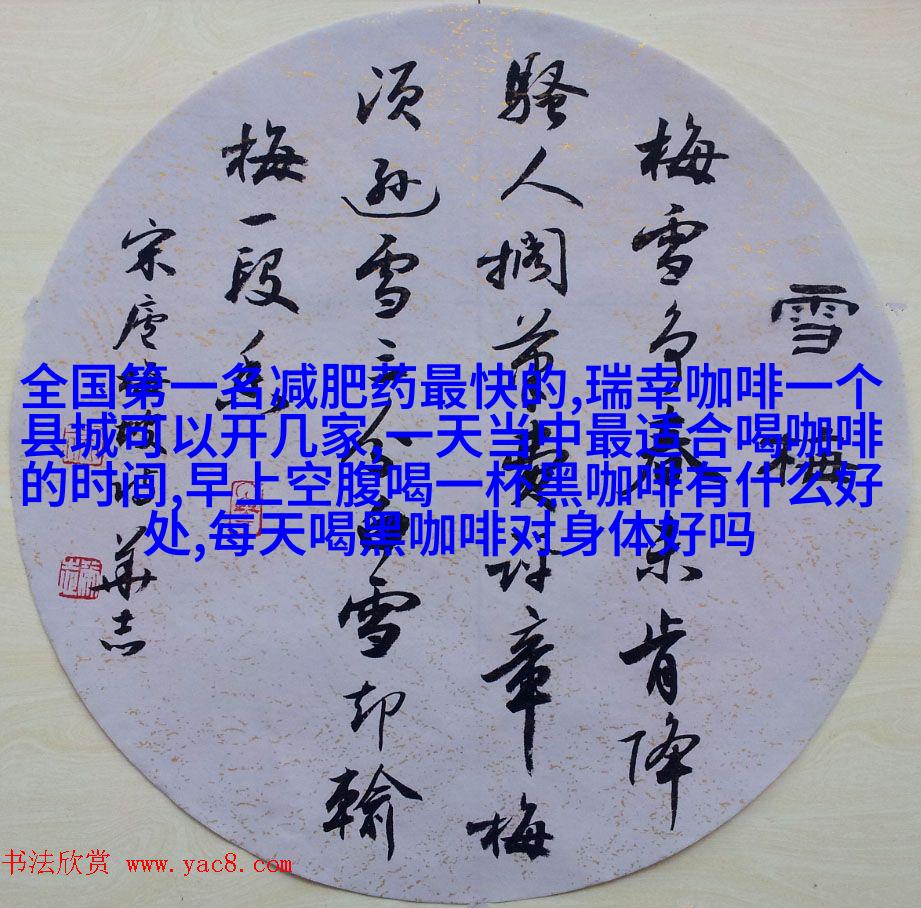 雪梅
梅雪争春未肯降
骚人搁笔费评章梅
须逊雪三分白雪却输
梅一段香
宋卢梅坡 华志
全国第一名减肥药最快的,瑞幸咖啡一个
县城可以开几家,一天当中最适合喝咖啡
的时间,早上空腹喝一杯黑咖啡有什么好
处,每天喝黑咖啡对身体好吗
书法欣赏 www.yac8.com